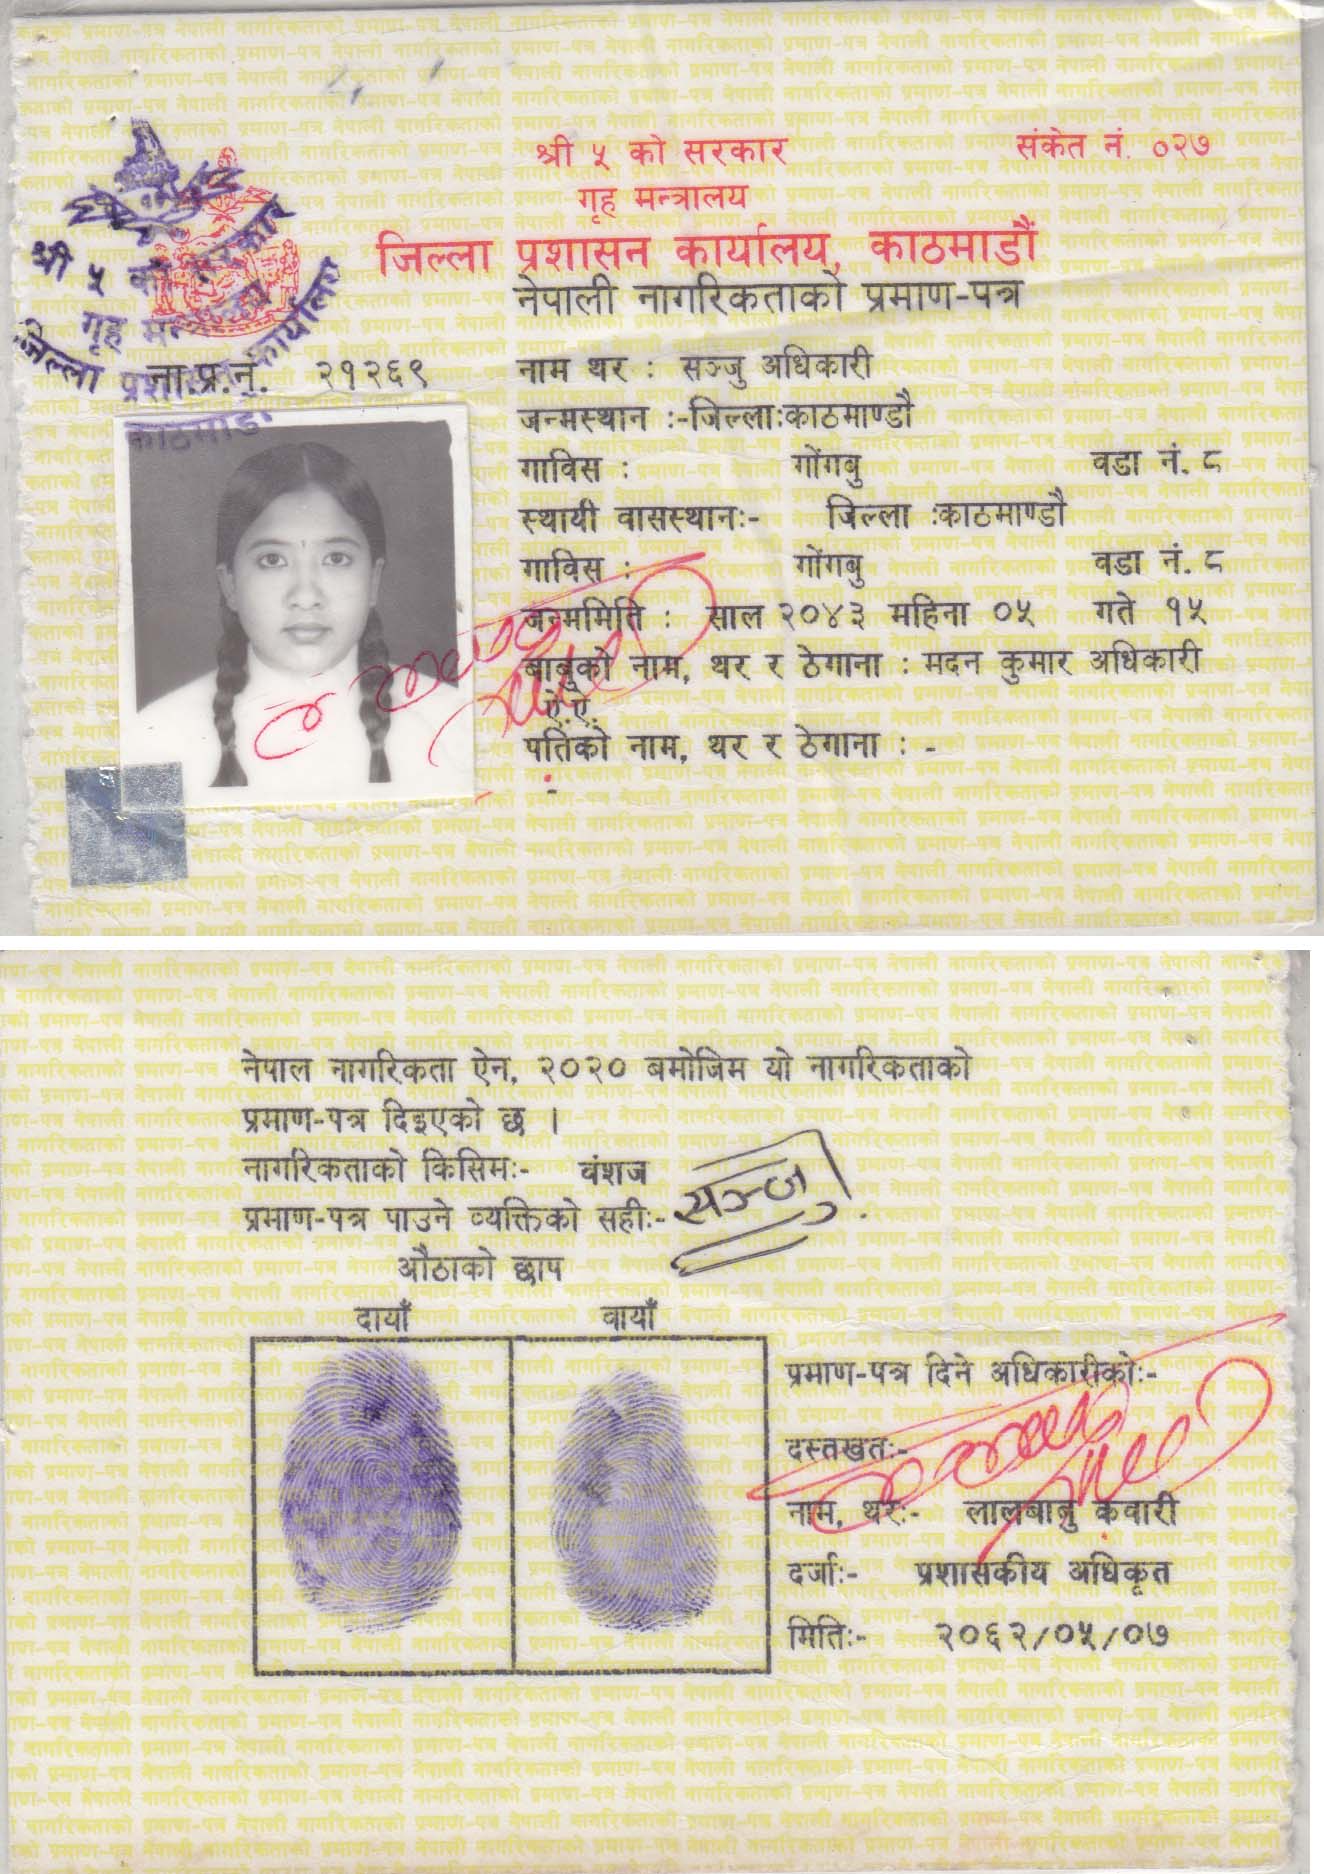 श्री ५ को सरकार
संकेत नं. ०२७
गृह मन्त्रालय
जिल्ला प्रशासन कार्यालय, काठमाडौं
नेपाली नागरिकताको प्रमाण-पत्र
श्री ५ को
गृह
जिल्ला प्रशासन कार्यालय
काठमाडौं
ना.प्र.नं. २१२६९
नाम थर : सञ्जु अधिकारी
जन्मस्थान :-जिल्ला:काठमाण्डौ
गाविस : गोंगबु वडा नं. ८
स्थायी वासस्थान:- जिल्ला :काठमाण्डौ
गाविस : गोंगबु वडा नं. ८
जन्ममिति : साल २०४३ महिना ०५ गते १५
बाबुको नाम, थर र ठेगाना : मदन कुमार अधिकारी
ऐ.ऐ.
पतिको नाम, थर र ठेगाना : -
नेपाल नागरिकता ऐन, २०२० बमोजिम यो नागरिकताको
प्रमाण-पत्र दिइएको छ ।
नागरिकताको किसिम:- वंशज
प्रमाण-पत्र पाउने व्यक्तिको सही:- सञ्जु
औठाको छाप
दायाँ वायाँ
प्रमाण-पत्र दिने अधिकारीको:-
दस्तखत:-
नाम, थर:- लालबाबु कवारी
दर्जा:- प्रशासकीय अधिकृत
मिति:- २०६२/०५/०७